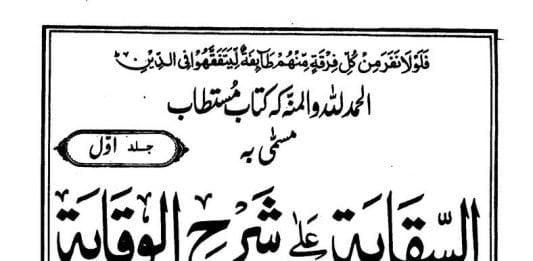 فَلَوْلَا نَفَرَ مِنْ كُلِّ فِرْقَةٍ مِّنْهُمْ طَآئِفَةٌ لِّيَتَفَقَّهُوْا فِی الدِّيْنِ ط
الحمد للہ والمنہ کہ کتاب مُستطاب
مسمّٰی بہ
جلد اوّل
السِّقَايَة عَلٰى شَرْحِ الْوِقَايَة